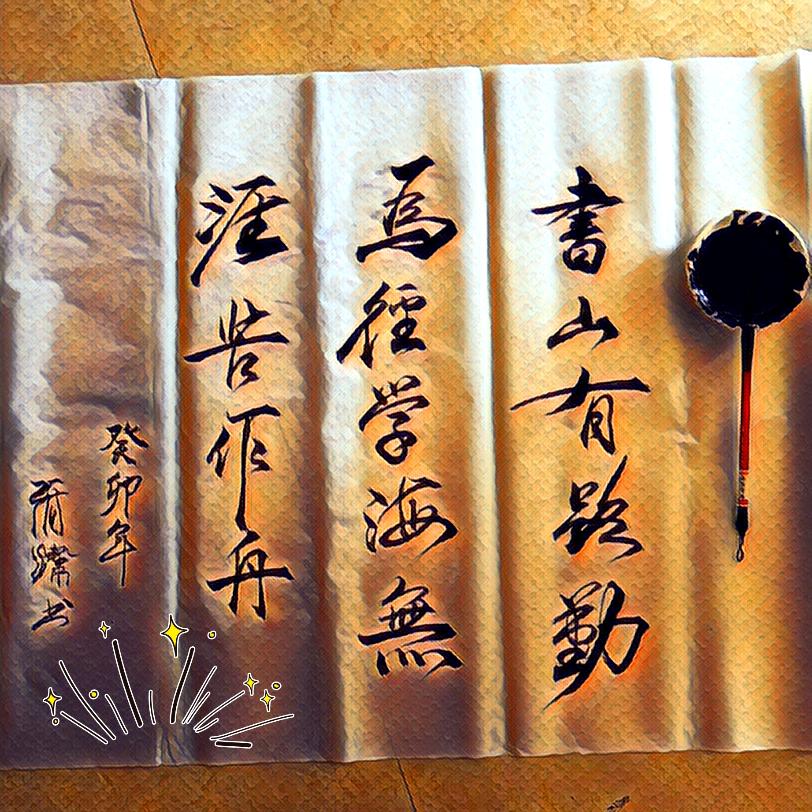 書山有路勤
為徑学海無
涯苦作舟
癸卯年
书